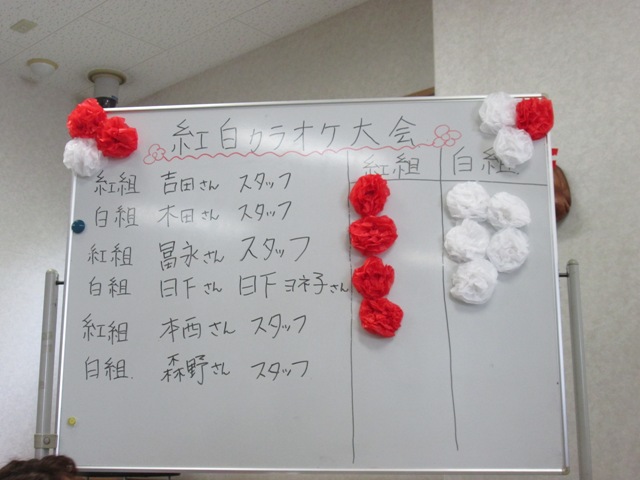 紅白カラオケ大会
紅組 白組
紅組 吉田さん スタッフ
白組 木田さん スタッフ
紅組 冨永さん スタッフ
白組 日下さん 日下ヨネ子さん
紅組 本西さん スタッフ
白組 森野さん スタッフ